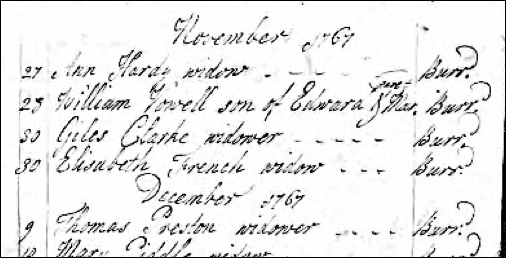 November 1767
27 Ann Hardy widow - - - - Burr.d
28 William Vowell son of Edward & Mar. Burr.d
30 Giles Clarke widower - - - - - Burr.d
30 Elisabeth French widow - - - Burr.d
December 1767
9 Thomas Preston widower - - - - Burr.d
Mary Piddle widow